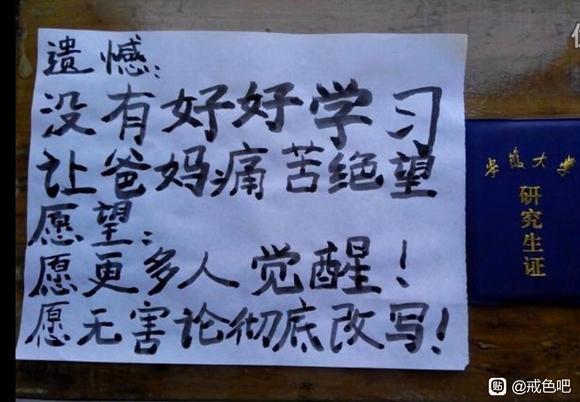 遗憾:
没有好好学习
让爸妈痛苦绝望
愿望:
愿更多人觉醒!
愿无害论彻底改写!
安徽大学
研究生证
贴 @戒色吧